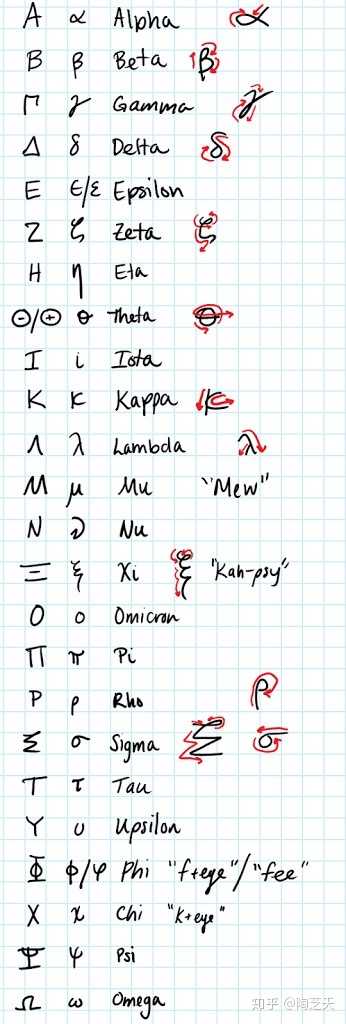 A α Alpha α
B β Beta β
Γ γ Gamma γ
Δ δ Delta δ
E ϵ/ε Epsilon
Z ζ Zeta ζ
H η Eta
Θ/Θ θ Theta θ
I i Iota
K κ Kappa K
Λ λ Lambda λ
M μ Mu "Mew"
N ν Nu
Ξ ξ Xi ξ "Kah-psy"
O o Omicron
Π π Pi
P ρ Rho ρ
Σ σ Sigma Σ σ
T τ Tau
Y υ Upsilon
Φ ϕ/φ Phi "f+eye"/"fee"
X χ Chi "k+eye"
Ψ ψ Psi
Ω ω Omega
知乎 @陶芝天